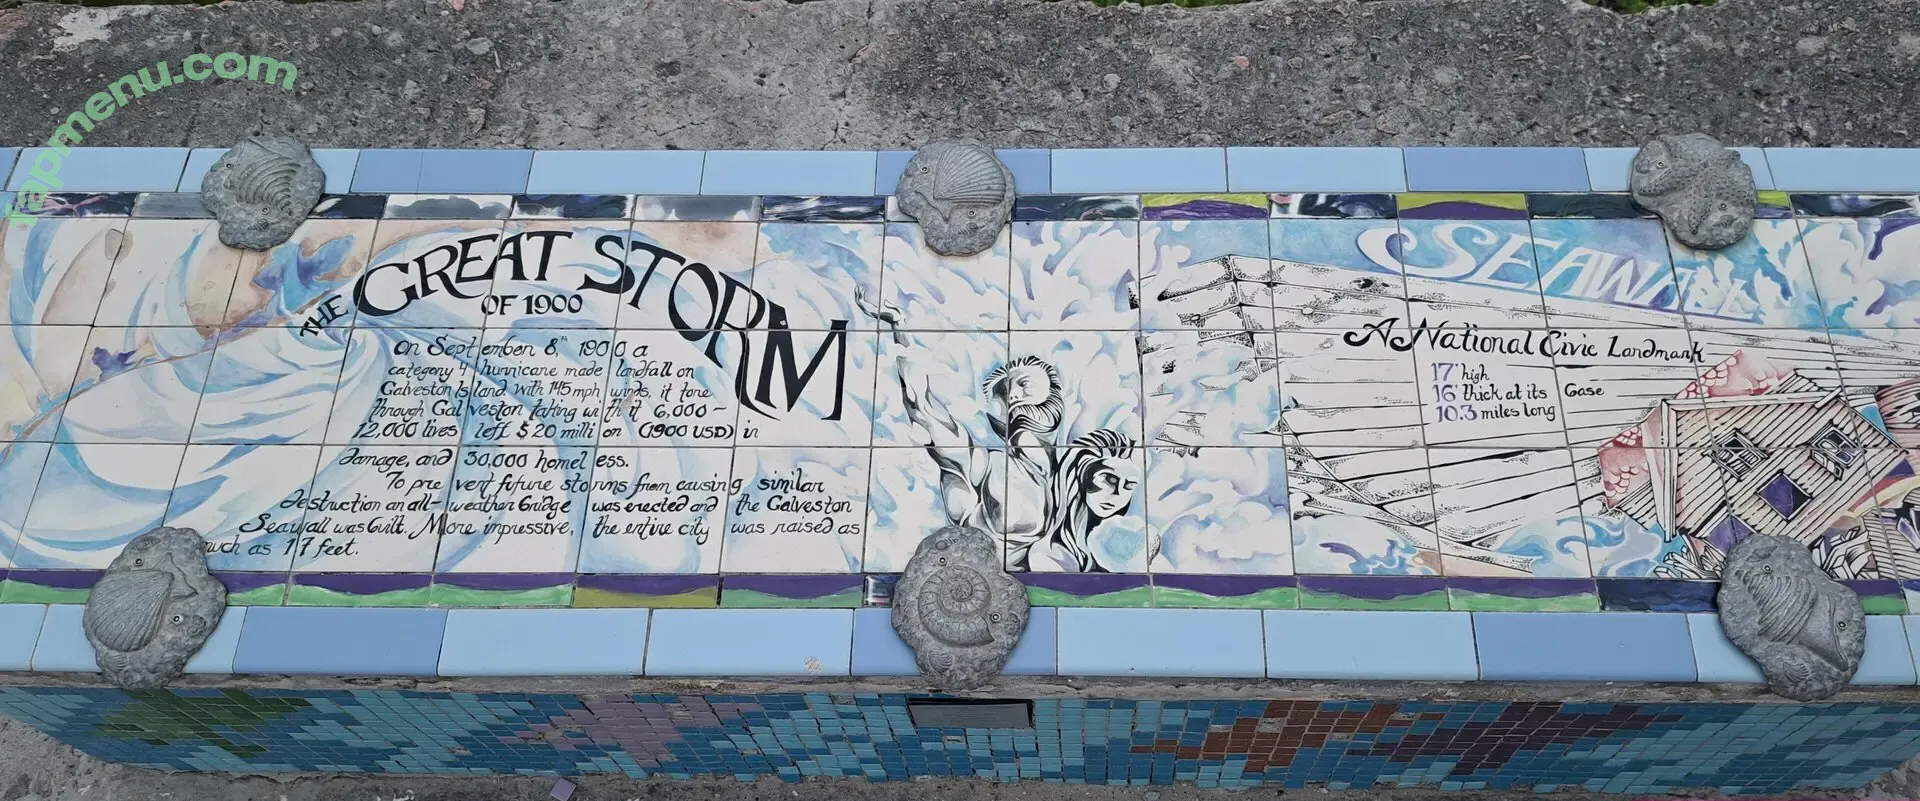 THE GREAT STORM
OF 1900
On September 8,th 1900 a
category 4 hurricane made landfall on
Galveston Island. With 145 mph winds, it tore
through Galveston taking with it 6,000 –
12,000 lives left $20 million (1900 USD) in
damage, and 30,000 homeless.
To prevent future storms from causing similar
destruction an all-weather bridge was erected and the Galveston
Seawall was built. More impressive, the entire city was raised as
much as 17 feet.
SEAWALL
A National Civic Landmark
17' high
16' thick at its base
10.3 miles long
fapmenu.com